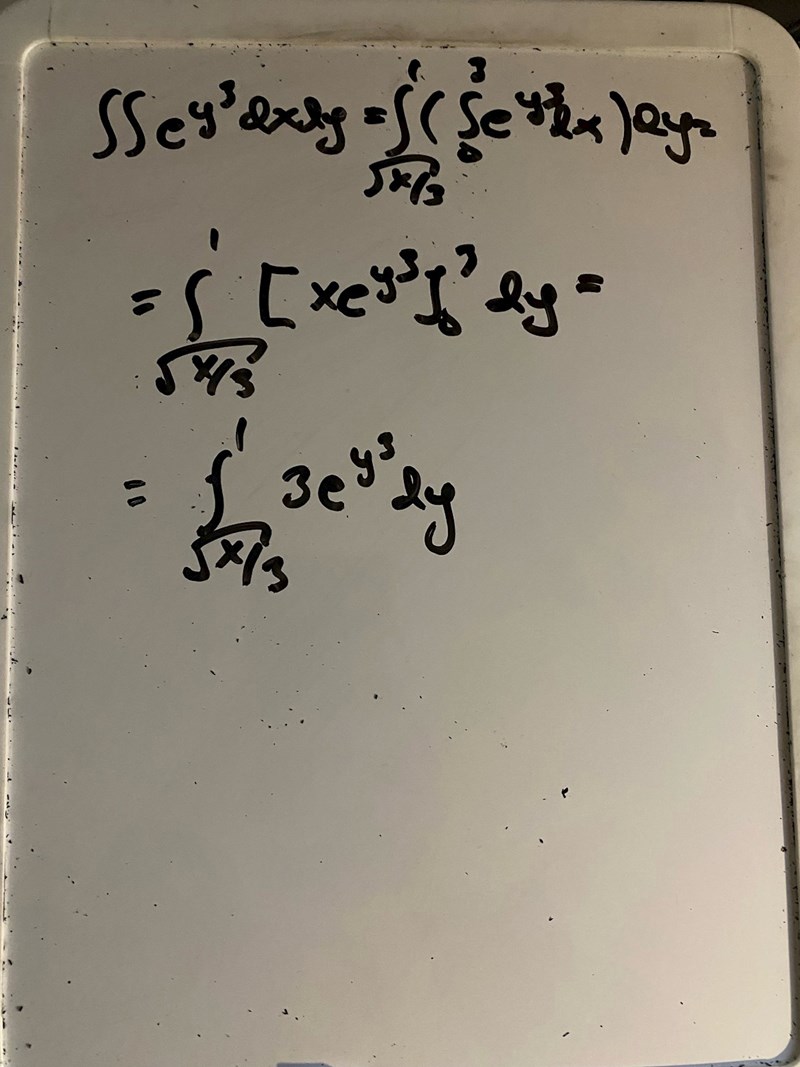 ∫∫e^{y^3}dxdy = ∫_{√x/3}^{1}(∫_{0}^{3}e^{y^3}dx)dy=
= ∫_{√x/3}^{1} [xe^{y^3}]_{0}^{3} dy =
= ∫_{√x/3}^{1} 3e^{y^3}dy